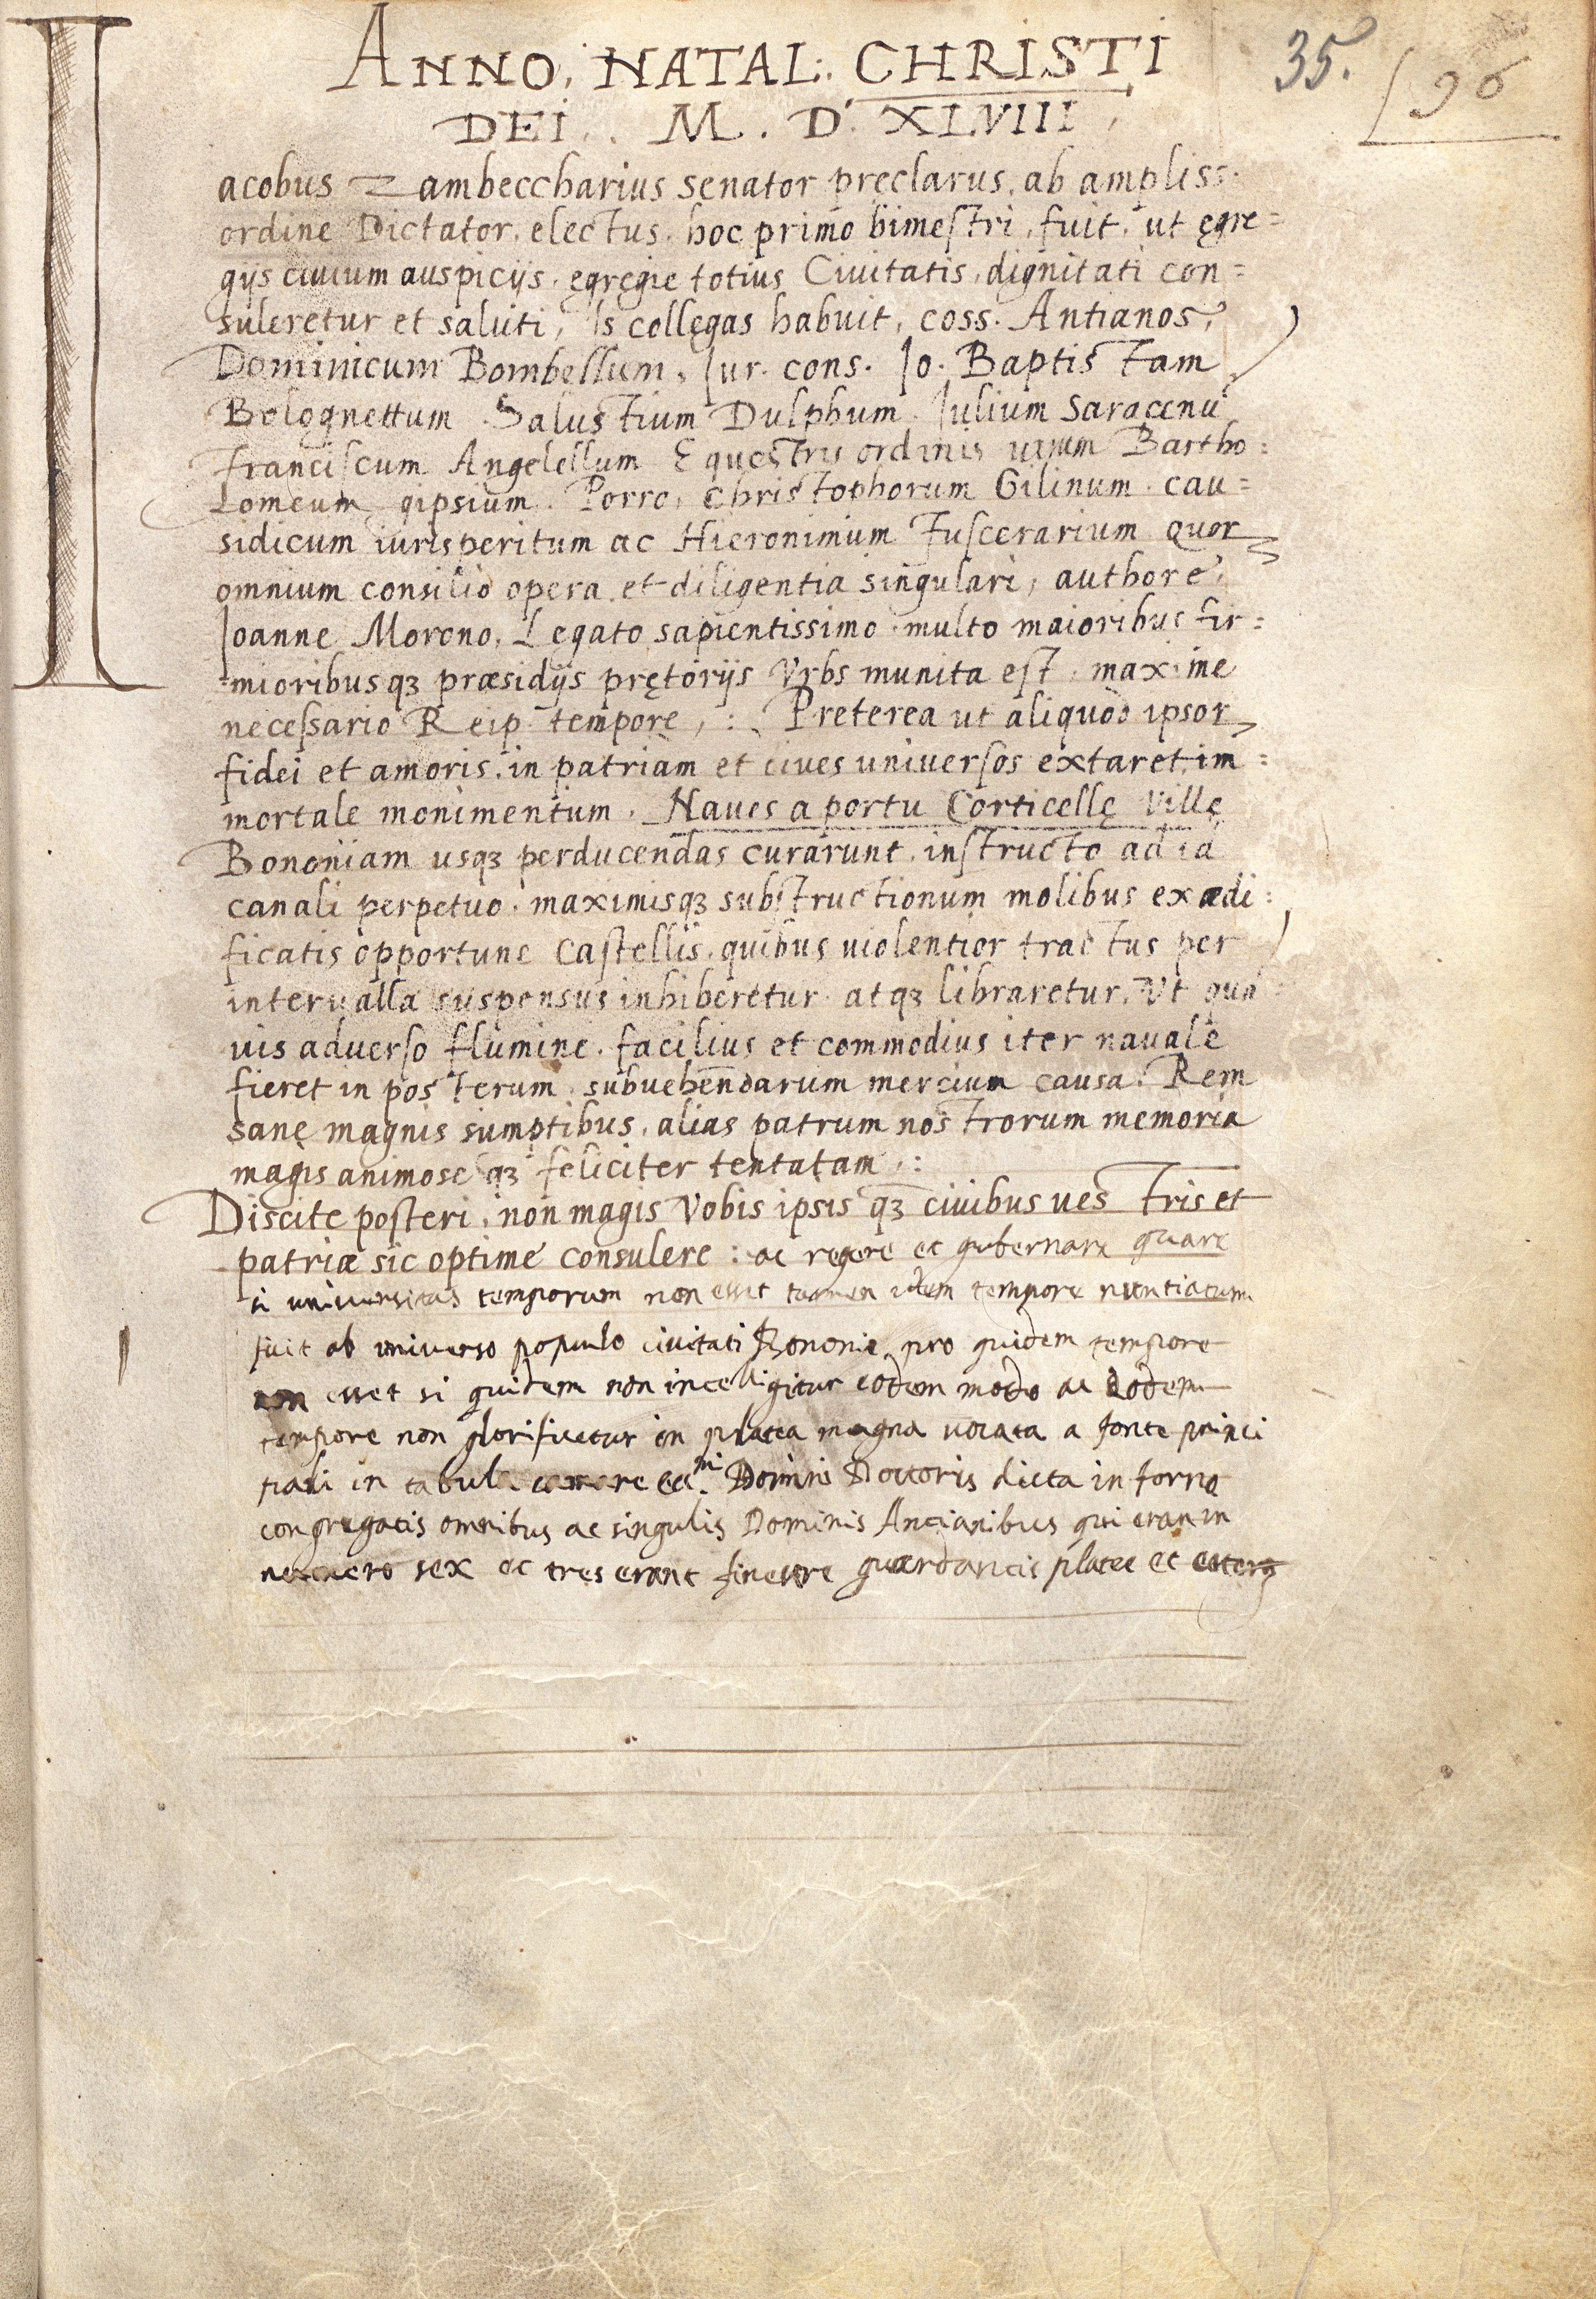 ANNO. NATAL: CHRISTI
35.
96
DEI. M. D. XLVIII
Iacobus Zambeccharius senator pręclarus, ab ampliss.
ordine Dictator electus hoc primo bimestri, fuit, ut ęgre=
gijs ciuium auspicijs. ęgręgie totius Ciuitatis, dignitati con=
suleretur et saluti, Is collęgas habuit, coss. Antianos,
Dominicum Bombellum, Iur. cons. Io. Baptistam
Bolognettum Salustium Dulphum Iulium Saracenū
Franciscum Angelellum Equestris ordinis uirum Bartho=
lomeum gipsium. Porro, Christophorum Gilinum cau=
sidicum iurisperitum ac Hieronimum Fuscerarium quor
omnium consilio opera et diligentia singulari, authore,
Ioanne Morono, Legato sapientissimo multo maioribus fir=
mioribusqȝ præsidijs prętorijs Vrbs munita est, maxime
necessario Reip. tempore, : Preterea ut aliquod ipsor
fidei et amoris, in patriam et ciues uniuersos extaret im=
mortale monimentum. Naues a portu Corticellę Villę
Bononiam usqȝ perducendas curarunt, instructo ad id
canali perpetuo, maximisqȝ substructionum molibus exædi=
ficatis opportune Castellis, quibus uiolentior tractus per
interualla suspensus inhiberetur atqȝ libraretur, Vt quā
uis aduerso flumine, facilius et commodius iter nauale
fieret in posterum subuehendarum mercium causa. Rem
sanę magnis sumptibus, alias patrum nostrorum memoria
magis animose qȝ feliciter tentatam :
Discite posteri, non magis Vobis ipsis qȝ ciuibus uestris et
patriæ sic optime consulere : ac regere et gubernare quare
si universitas temporum non esset tamen idem tempore nuntiatum
fuit ab universo populo civitati Bononie pro quidem tempore
non esset si quidem non intelligitur eodem modo ac eodem
tempore non glorificetur in platea magna vocata a fonte princi
pali in tabula Domini Doctoris dicta in forno
congregatis omnibus ac singulis Dominis Ancianibus qui eran in
numero sex et tres erant finestre guardancis platee et